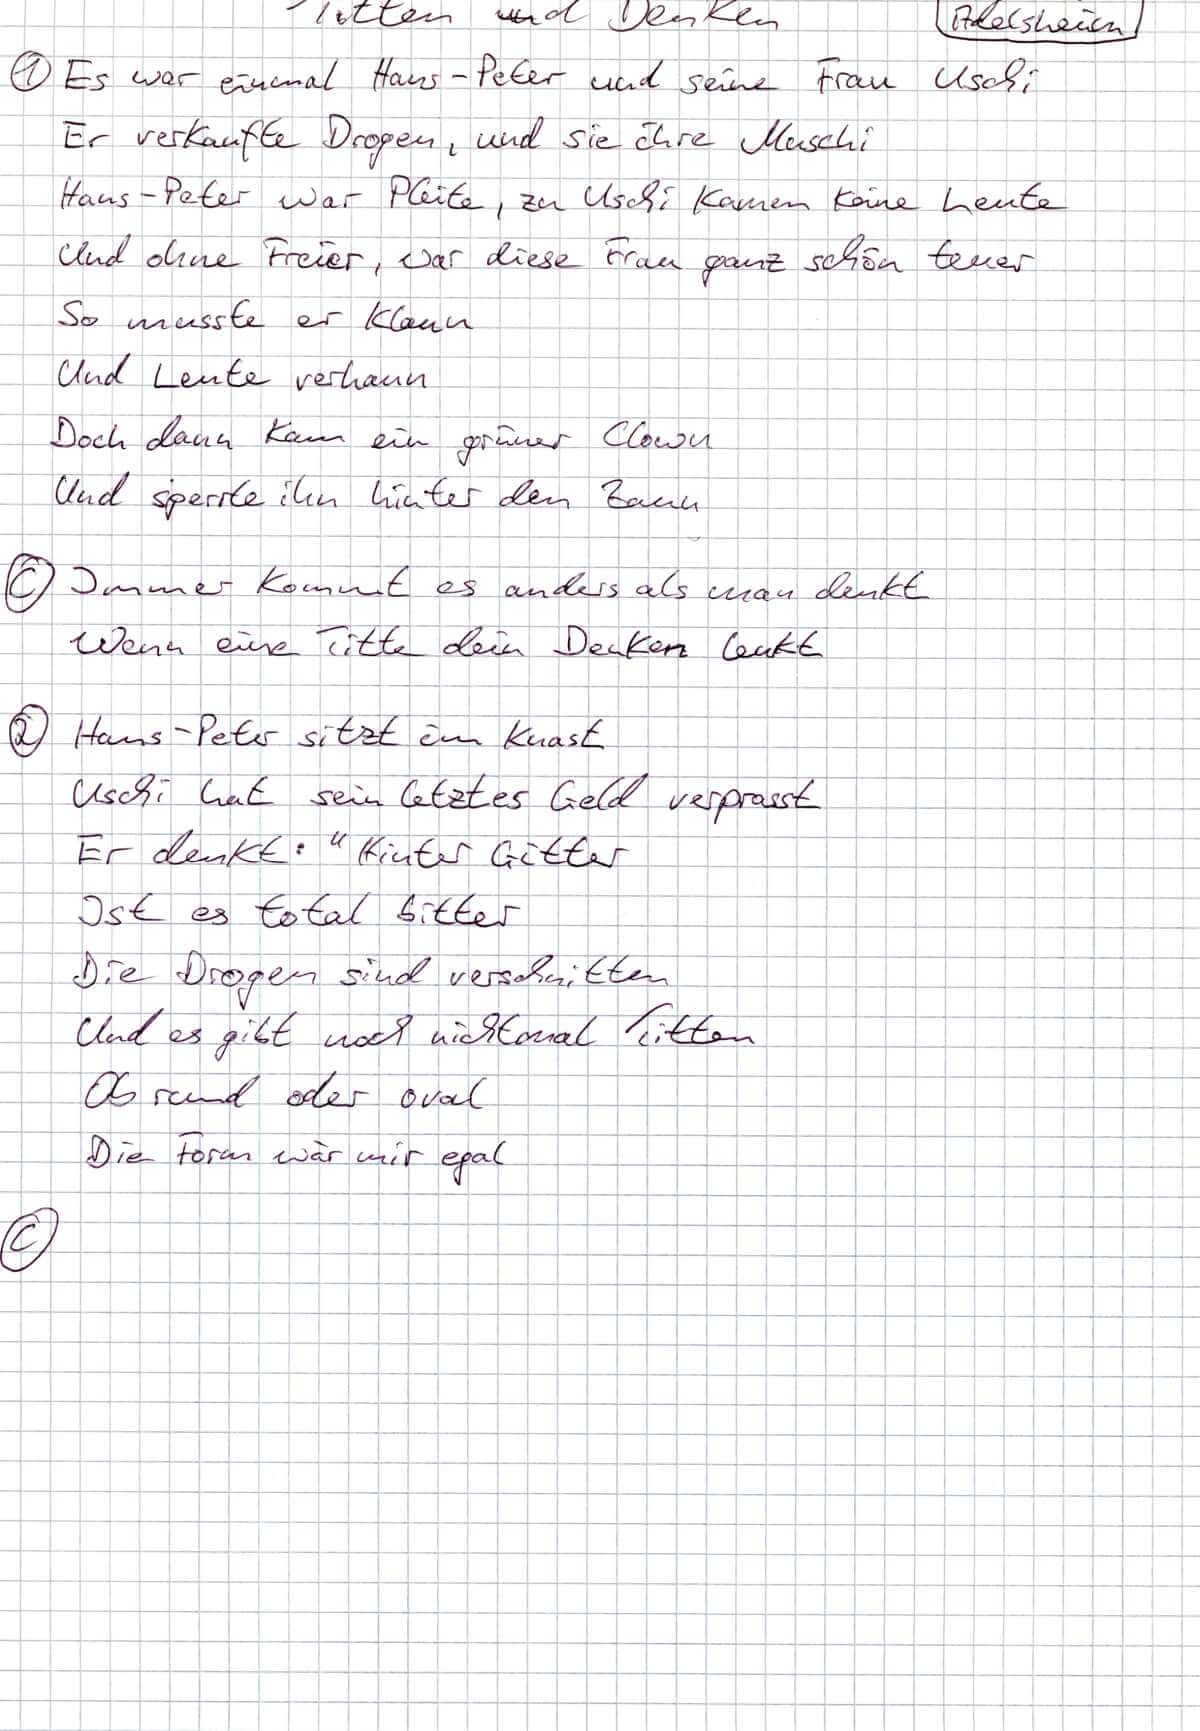 Titten und Denken
Adelsheim
① Es war einmal Hans-Peter und seine Frau Uschi
Er verkaufte Drogen, und sie ihre Muschi
Hans-Peter war Pleite, zu Uschi kamen keine Leute
Und ohne Freier, war diese Frau ganz schön teuer
So musste er klaun
Und Leute verhaun
Doch dann kam ein grüner Clown
Und sperrte ihn hinter den Zaun
Ⓒ Immer kommt es anders als man denkt
Wenn eine Titte dein Denken lenkt
② Hans-Peter sitzt im Knast
Uschi hat sein letztes Geld verprasst
Er denkt: "Hinter Gitter
Ist es total bitter
Die Drogen sind verschnitten
Und es gibt noch nichtmal Titten
Ob rund oder oval
Die Form wär mir egal
Ⓒ